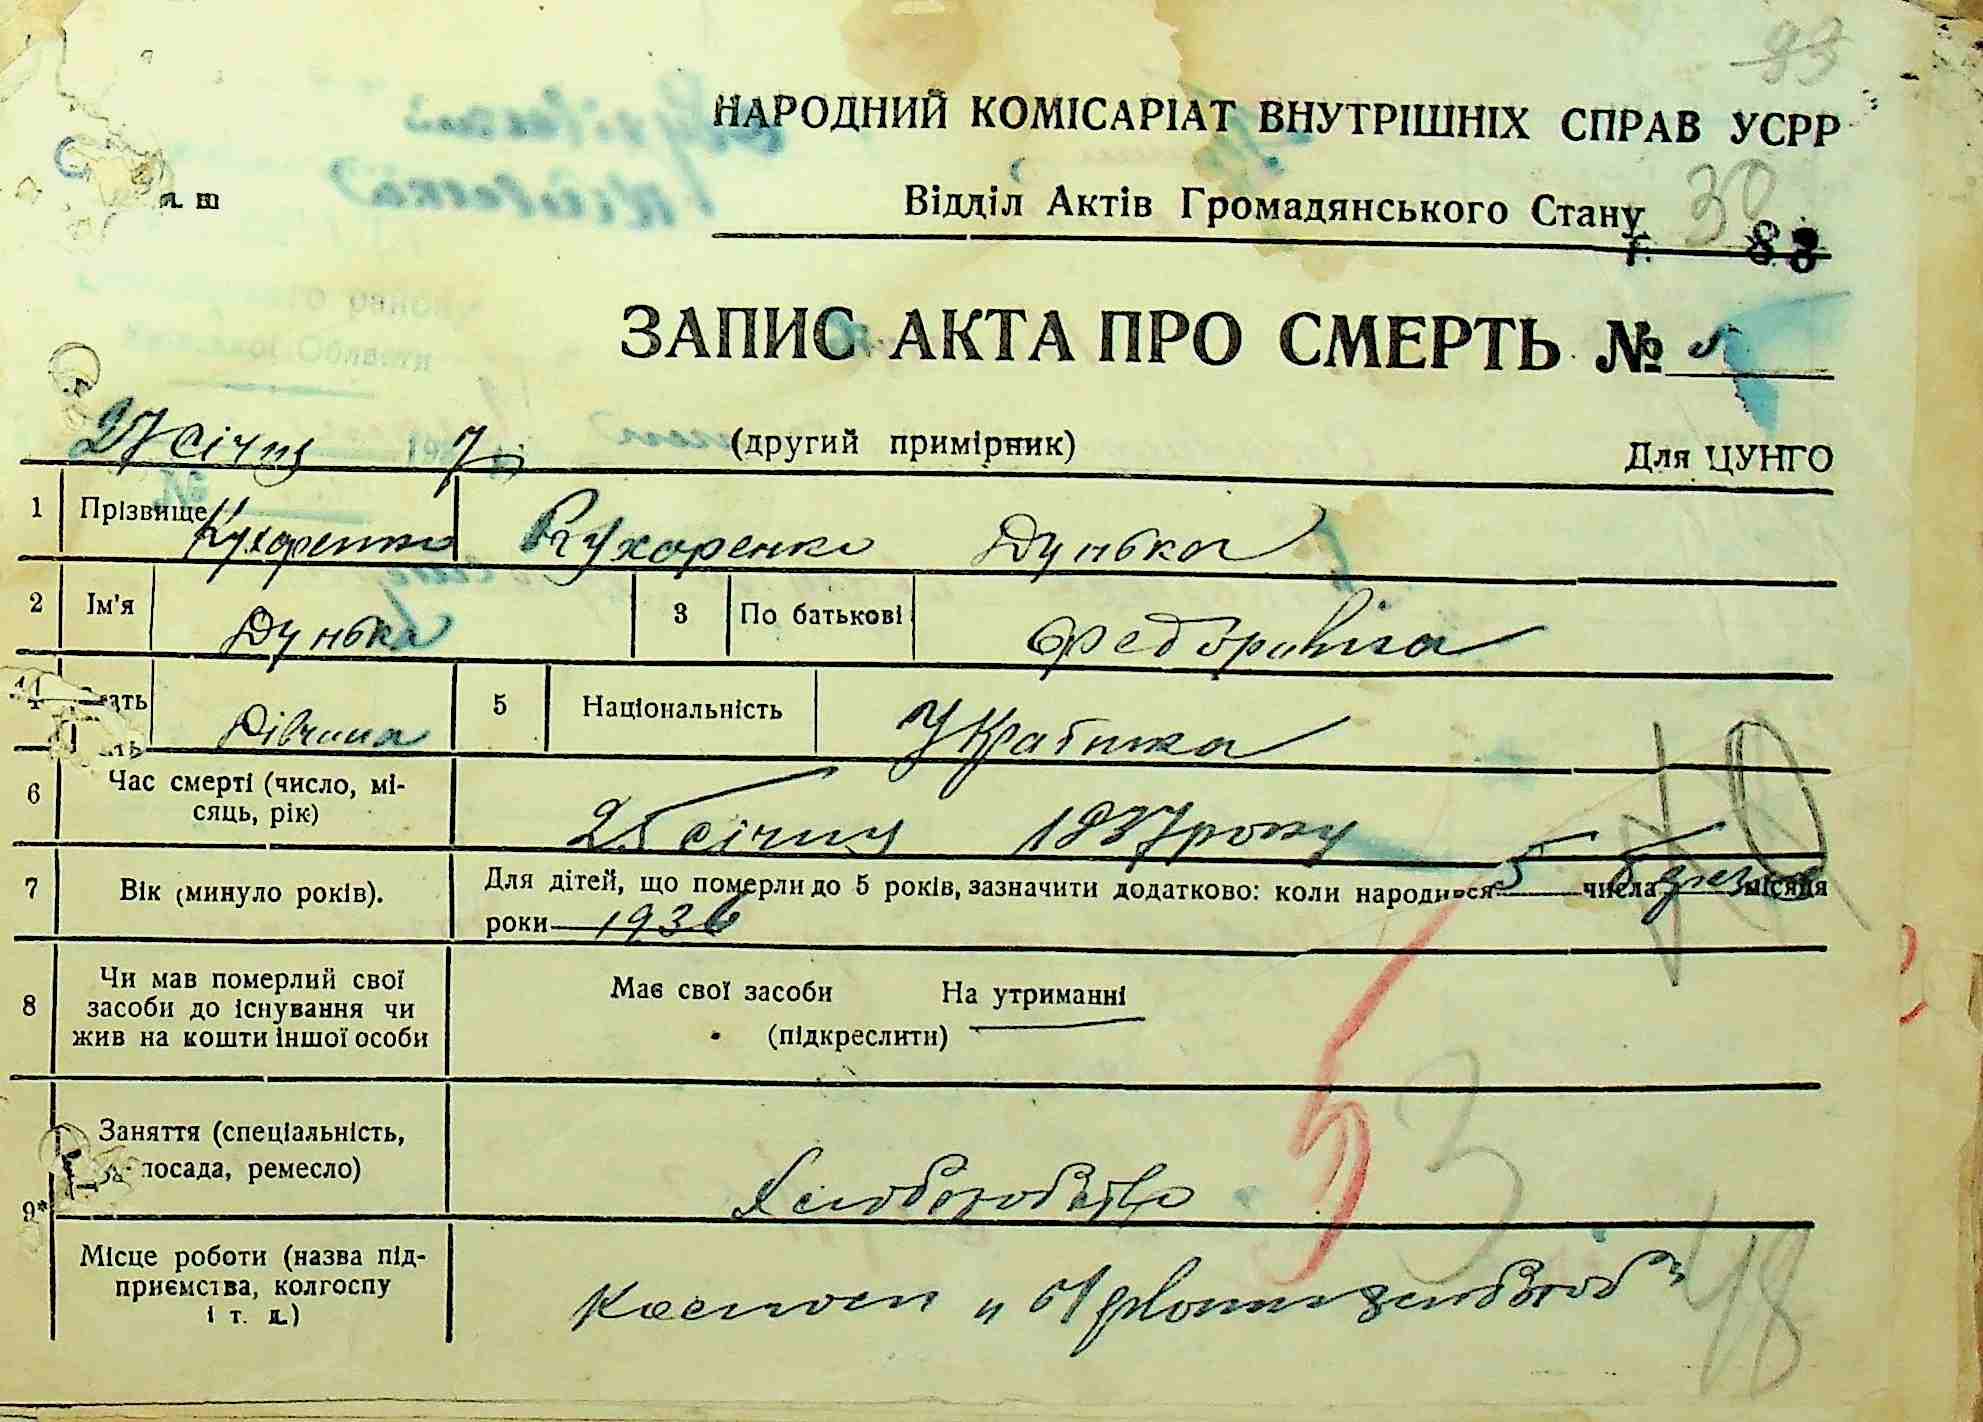 83
НАРОДНИЙ КОМІСАРІАТ ВНУТРІШНІХ СПРАВ УСРР
Відділ Актів Громадянського Стану 30
83
ЗАПИС АКТА ПРО СМЕРТЬ № 5
27 Січня 193 7 (другий примірник) Для ЦУНГО
1 Прізвище Кухаренко Кухаренко Дунька
2 Ім'я Дунька 3 По батькові Федоровіна
4 5 Національність Українка
Дівчина
6 Час смерті (число, мі-
сяць, рік)
25 січня 1937 року
7 Вік (минуло років). Для дітей, що померли до 5 років, зазначити додатково: коли народився 5 числа березня місяця
роки 1936
8 Чи мав померлий свої
засоби до існування чи
жив на кошти іншої особи
Має свої засоби На утриманні
(підкреслити)
53
9* Заняття (спеціальність,
посада, ремесло)
Хліборобство
Місце роботи (назва під-
приємства, колгоспу
і т. д.)
Колгосп
48